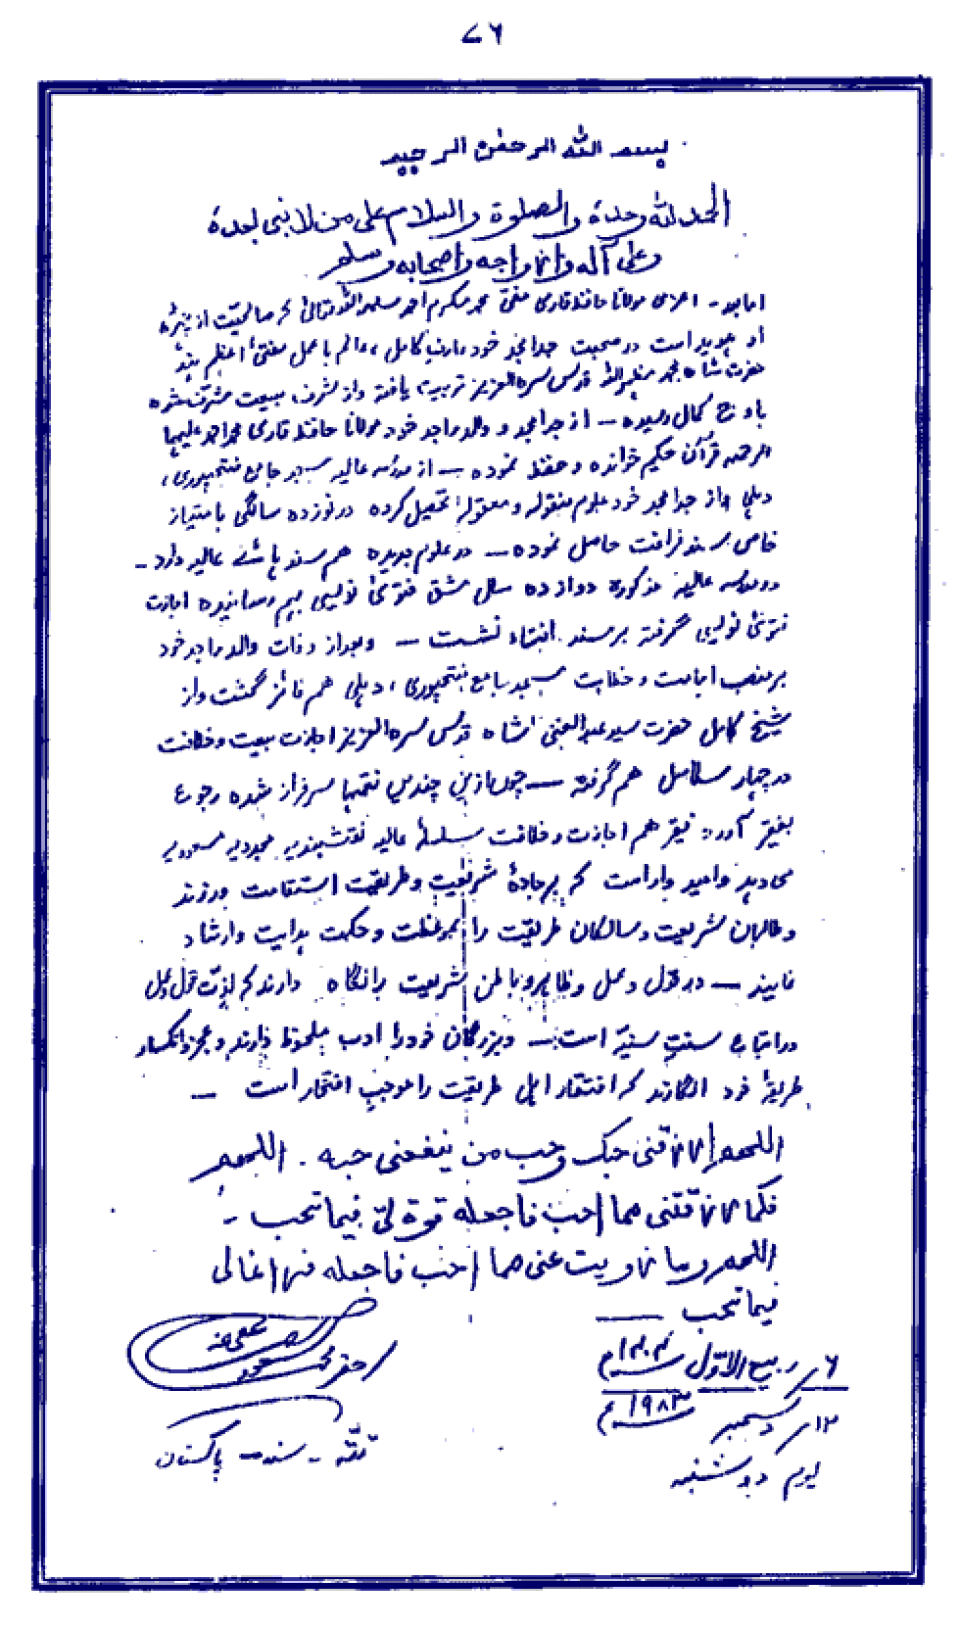 ۷۶
بسم الله الرحمن الرحيم
الحمد لله وحده والصلوة والسلام على من لا نبى بعده
وعلى آله وازواجه واصحابه وسلم
اما بعد ـ اعزی مولانا حافظ قاری مفتی محمد مکرم احمد سلمہ اللہ تعالیٰ کہ صالحیت از
او ہویدا ست در صحبت جد امجد خود عارف کامل، عالم باعمل مفتیٔ اعظم ہند
حضرت شاہ محمد مظہر اللہ قدس سرہ العزیز تربیت یافتہ واز شرف بیعت مشرف شدہ
باوج کمال رسیدہ ـ از جد امجد و والد ماجد خود مولانا حافظ قاری محمد احمد علیہما
الرحمہ قرآن حکیم خواندہ و حفظ نمودہ ـ از مدرسہ عالیہ مسجد جامع فتحپوری،
دہلی واز جد امجد خود علوم منقولہ و معقولہ تحصیل کردہ در نوزدہ سالگی با متیاز
خاص سند فراغت حاصل نمودہ ـ در علوم جدیدہ ہم سند ہائے عالیہ دارد ـ
در مدرسہ عالیہ مذکورہ دوازدہ سال مشق فتویٰ نویسی بہم رسانیدہ اجازت
فتویٰ نویسی گرفتہ بر مسند افتاء نشست ـ وبعد از وفات والد ماجد خود
بر منصب امامت و خطابت مسجد جامع فتحپوری، دہلی ہم فائز گشت واز
شیخ کامل حضرت سید عبد الغنی شاہ قدس سرہ العزیز اجازت بیعت وخلافت
در چہار سلاسل ہم گرفتہ ـ چوں ازیں چندیں نعمتہا سرفراز شدہ رجوع
بفقیر آورد، فقیر ہم اجازت وخلافت سلسلۂ عالیہ نقشبندیہ مجددیہ مسعودیہ
می دہد وامید وار است کہ بر جادۂ شریعت وطریقت استقامت ورزند
وطالبان شریعت وسالکان طریقت را بموعظت وحکمت ہدایت وارشاد
نمایند ـ در قول وعمل وظاہر وباطن شریعت را نگاہ دارند کہ لذت قول وعمل
در اتباع سنت سنیہ است ـ وبزرگان خود را ادب ملحوظ دارند وعجز وانکسار
طریقۂ خود انگارند کہ افتقار اہل طریقت را موجب افتخار است ـ
اللهم ارزقنى حبك وحب من ينفعنى حبه . اللهم
فكما رزقتنى مما احب فاجعله قوة لى فيما تحب ـ
اللهم وما زويت عنى مما احب فاجعله فراغا لى
فيما تحب
۶ ربیع الاول ۱۴۰۴ھ
۱۲ دسمبر ۱۹۸۳ء
یوم دوشنبہ
احقر محمد مسعود عفی عنہ
ٹھٹہ ـ سندھ پاکستان